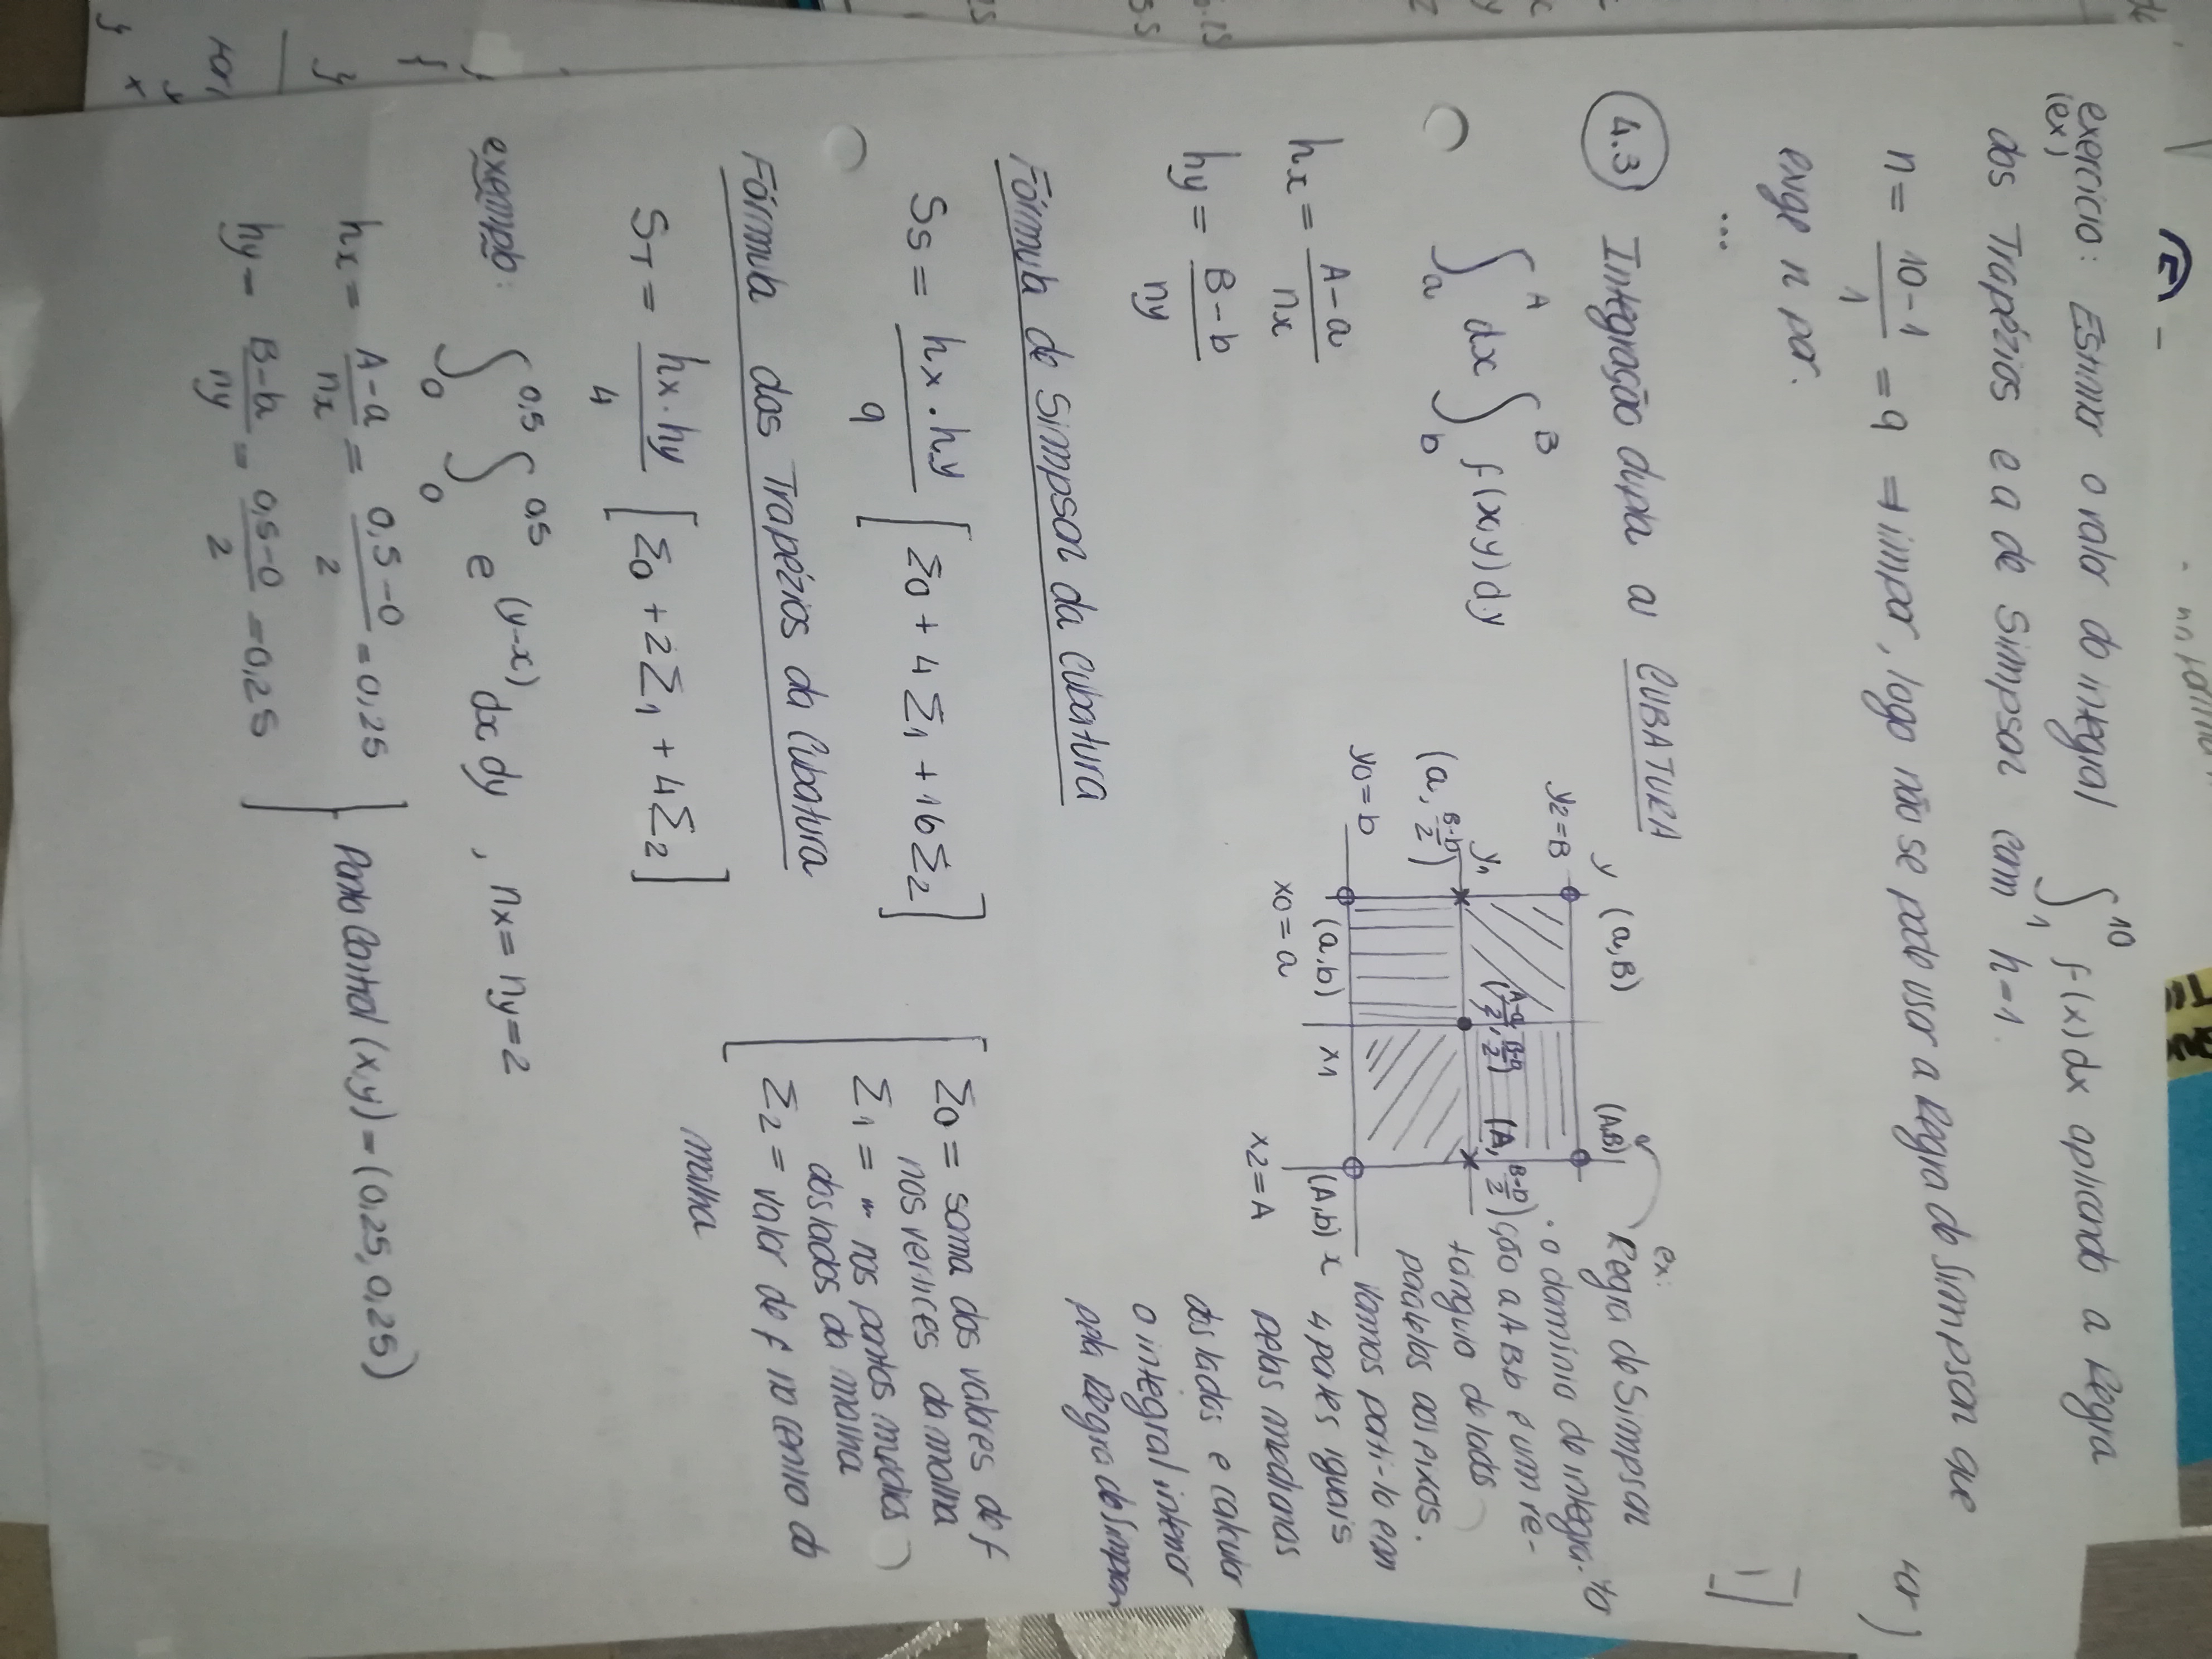 na forma
exercício: Estimar o valor do integral ∫₁¹⁰ f(x) dx aplicando a Regra
(ex)
dos Trapézios e a de Simpson com h=1.
n = (10-1)/1 = 9 ⇒ impar, logo não se pode usar a Regra de Simpson que
exige n par.
...
4.3 Integração dupla ou CUBATURA
∫ₐᴬ dx ∫_b^B f(x,y) dy
hx = (A-a)/nx
hy = (B-b)/ny
y (a,B) (A,B)
y2=B
y1 (A-a/2, B-b/2) (A, B-b/2)
(a, B-b/2)
y0=b
(a,b) x1 (A,b) x
x0=a
x2=A
ex:
Regra de Simpson
. o domínio de integra-
ção a A B b é um re-
tângulo de lados
paralelos aos eixos.
Vamos parti-lo em
4 partes iguais
pelas medianas
dos lados e calcular
o integral interior
pela Regra de Simpson
Fórmula de Simpson da Cubatura
Ss = (hx.hy)/9 [Σ0 + 4Σ1 + 16Σ2]
Σ0 = soma dos valores de f
nos vertices da malha
Σ1 = " nos pontos médios
dos lados da malha
Σ2 = valor de f no centro da
malha
Fórmula dos Trapézios da Cubatura
ST = (hx.hy)/4 [Σ0 + 2Σ1 + 4Σ2]
exemplo: ∫₀^0,5 ∫₀^0,5 e^(y-x) dx dy , nx = ny = 2
hx = (A-a)/nx = (0,5-0)/2 = 0,25
Ponto Central (x,y) = (0,25, 0,25)
hy = (B-b)/ny = (0,5-0)/2 = 0,25